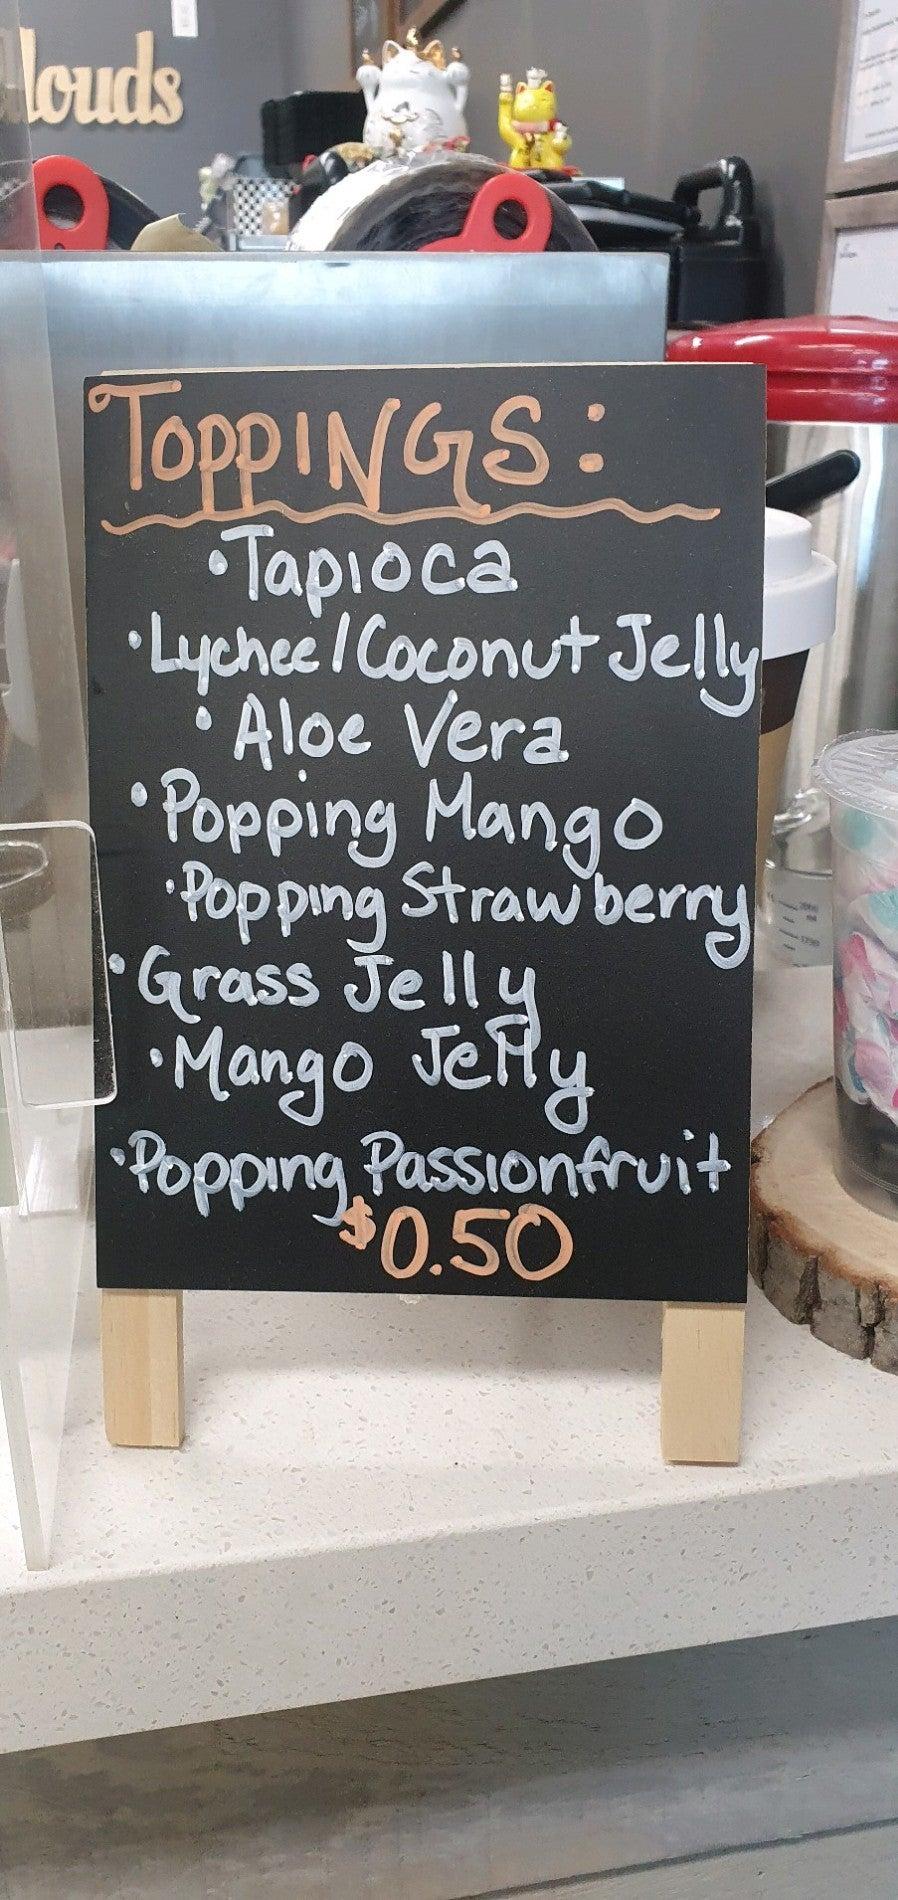 louds
TOPPINGS:
•Tapioca
•Lychee/Coconut Jelly
•Aloe Vera
•Popping Mango
•Popping Strawberry
•Grass Jelly
•Mango Jelly
•Popping Passionfruit
$0.50